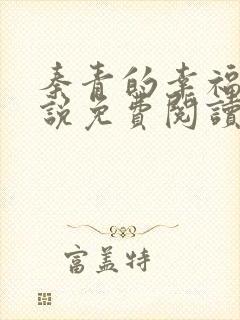 秦青的幸福
說免費閱讀
富蓋特